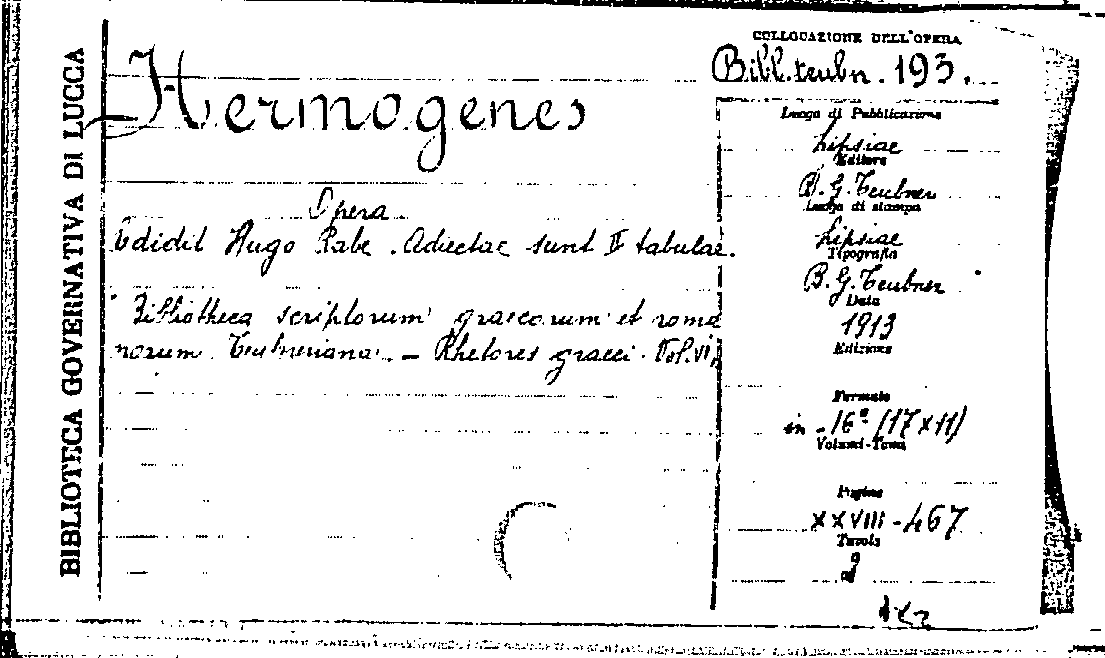 BIBLIOTECA GOVERNATIVA DI LUCCA
Hermogenes
Opera
Edidit Hugo Rabe. Adiectae sunt II tabulae.
Bibliotheca scriptorum graecorum et roma
norum Teubneriana. - Rhetores graeci. Vol. VI
COLLOCAZIONE DELL'OPERA
Bibl. teubn. 193.
Luogo di Pubblicazione
Lipsiae
Editore
B. G. Teubner
Luogo di stampa
Lipsiae
Tipografia
B. G. Teubner
Data
1913
Edizione
Formato
in-16° (17x11)
Volumi-Tomi
Pagine
XXVIII-467
Tavole
2